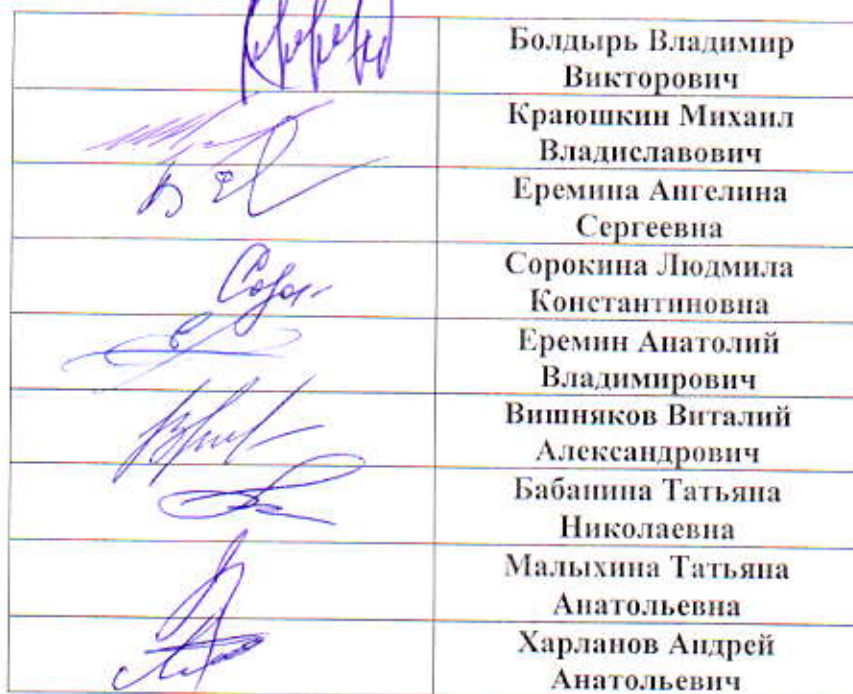 Болдырь Владимир
Викторович
Краюшкин Михаил
Владиславович
Еремина Ангелина
Сергеевна
Сорокина Людмила
Константиновна
Еремин Анатолий
Владимирович
Вишняков Виталий
Александрович
Бабанина Татьяна
Николаевна
Малыхина Татьяна
Анатольевна
Харланов Андрей
Анатольевич